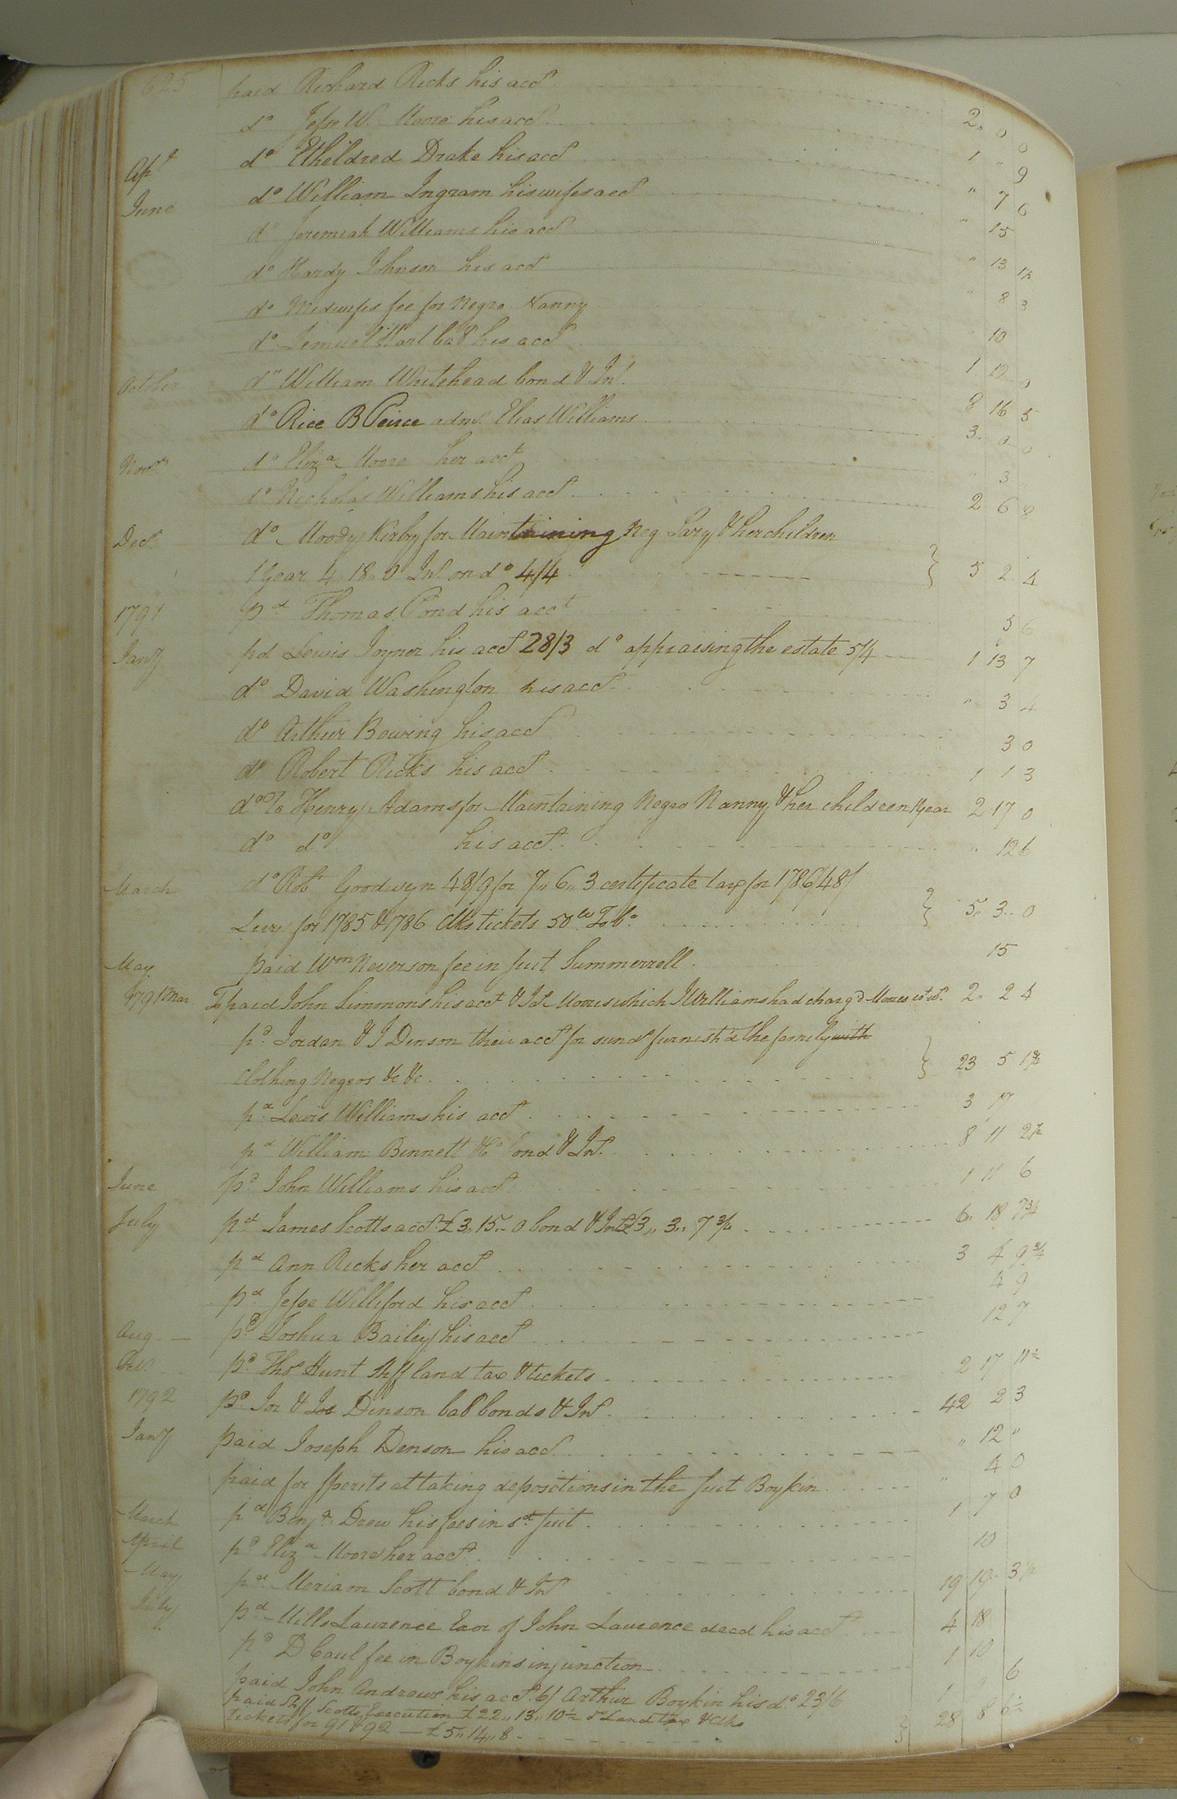 625 paid Richard Ricks his acct 2. 0 0
do Jesse W. Moore his acct 1 " 9
Apl do Etheldred Drake his acct " 7 6
June do William Ingram his wifes acct " 15
do Jeremiah Williams his acct " 13 1½
do Hardy Johnson his acct " 8 3
do Midwifes fee for Negro Nanny 10
do Lemuel Hart bal his acct 1 12 0
October do William Whitehead bond & Int. 8 16 5
do Rice B Peirce adm. Elias Williams 3. 0 0
Novr do Eliza Moore her acct 3
do Nicholas Williams his acct 2 6 0
Decr do Moody Kirby for Maintaining Neg Lucy & her children
1 year 4. 18. 0 Int. on do 4/4 } 5 2 4
1791 pd Thomas Pond his acct 5 6
Jany pd Lewis Joyner his acct 28/3 do appraising the estate 5/4 1 13 7
do David Washington his acct " 3 4
do Arthur Bowing his acct 3 0
do Robert Ricks his acct 1 1 3
do To Henry Adams for Maintaining Negro Nanny & her children 1 year 2 17 0
do do his acct. " 12 6
March do Robt Goodwyn 48/9 for 7" 6" 3 certificate tax for 1786 48/
Levy for 1785 & 1786 Clks tickets 50 lw Tobo } 5. 3. 0
May paid Wm Neverson fee in suit Summerrell 15
1791 Mar To paid John Simmons his acct & Int. Moores which J Williams had chargd Moores 2. 2 4
pd Jordan & J Denson their acct for sunds furnish'd the family with
Clothing Negros &c &c. } 23 5 1½
pd Lewis Williams his acct 3 17
pd William Bennett &c bond & Int. 8 11 2½
June pd John Williams his acct 1 11 6
July pd James Scotts acct £3. 15. 0 bond & Int £3. 3. 7¾ 6. 18 7¾
pd Ann Ricks her acct 3 4 9¾
pd Jesse Williford his acct 4 9
Aug pd Joshua Bailey his acct 12 7
pd Thos Hunt Shff land tax & tickets 2 17 11½
1792 pd Jor & Jos Denson bal bonds & Int. 42 2 3
Jany paid Joseph Denson his acct " 12 "
paid for Spirits at taking depositions in the suit Boykin " 4 0
March pd Benja Drew his fees in sd suit 1 7 0
April pd Eliza Moore her acct 10
May pd Meriam Scott bond & Int 19 19 3½
July pd Mills Laurence Exor of John Laurence decd his acct 4 18
pd D Caul fee in Boykins injunction 1 10
paid John Andrews his acct 6/ Arthur Boykin his do 23/6 1 9 6
paid Shff Scotts Execution £22. 13. 10½ Land tax & Clks
tickets for 91 & 92 — £5. 14. 8 } 28 8 6½